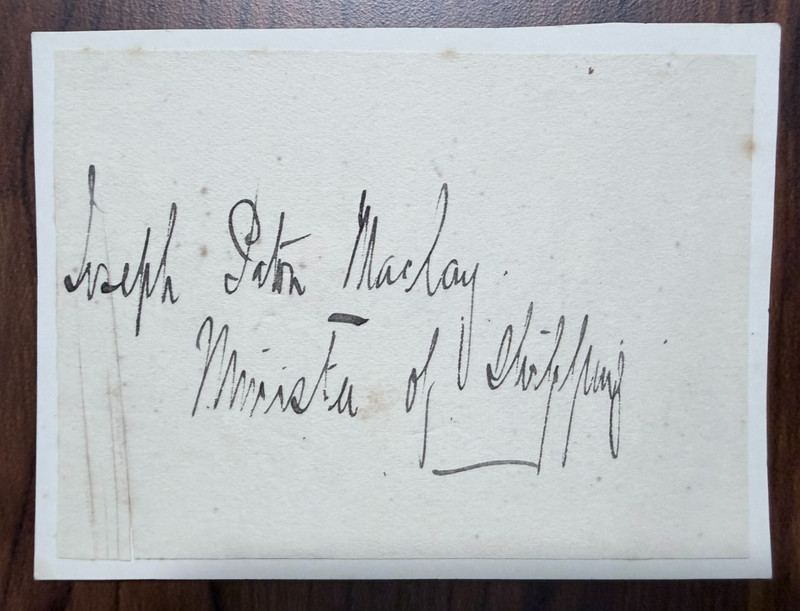 Joseph Paton Maclay.
Minister of Shipping